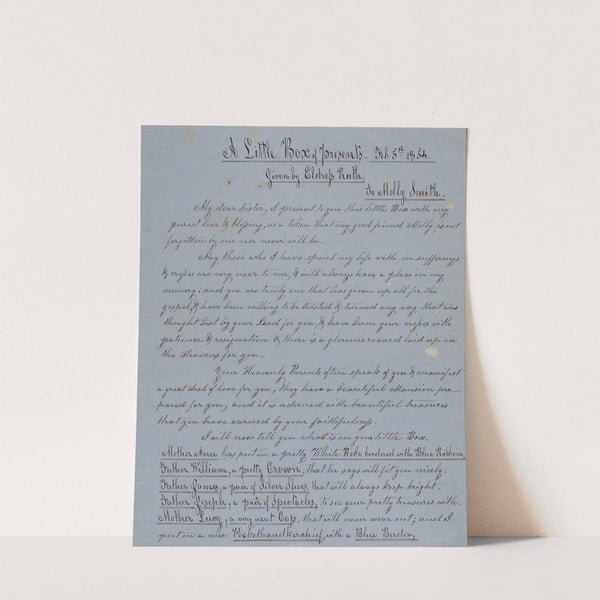 A Little Box of presents. Feb 5th 1854.
Given by Eldress Ruth,
To Molly Smith.
My dear sister, I present to you this little Box with my
purest love & blessing, as a token that my good friend Molly, is not
forgotten by me nor never will be.
Nay those who I have spent my life with, in sufferings
& cross are very near to me, & will always have a place in my
memory: and you are truly one that has given up all for the
gospel, & have been willing to be twisted & turned any way that was
thought best by your Lead for you, & have borne your cross with
patience & resignation & there is a glorious reward laid up in
the Heavens for you.
Your Heavenly Parents often speak of you & manifest
a great deal of love for you; they have a beautiful Mansion pre-
pared for you, and it is adorned with beautiful treasures
that you have earned by your faithfulness.
I will now tell you what is in your little Box.
Mother Ann has put in a pretty White Robe bound with Blue Ribbon,
Father William, a pretty Crown, that he says will fit you nicely.
Father James, a pair of Silver Shoes, that will always keep bright.
Father Joseph, a pair of Spectacles, to see your pretty treasures with.
Mother Lucy, a very neat Cap, that will never wear out; and I
put in a nice Pockethandkerchief, with a Blue Border,